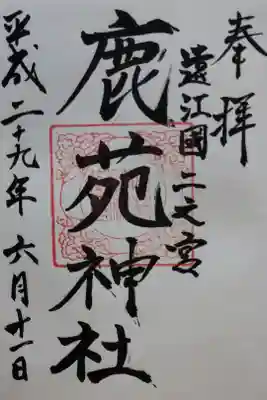 奉拝
遠江國二之宮
鹿苑神社
平成二十九年 六月十一日